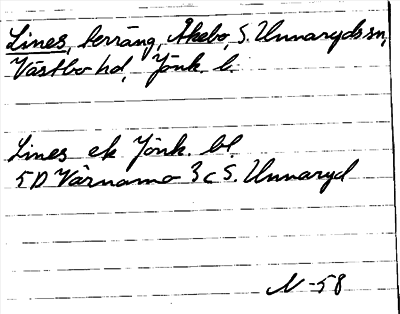 Lines, terräng, Åkebo, S. Unnaryds sn,
Västbo hd, Jönk. l.
Lines ek Jönk. bl.
5D Värnamo 3c S. Unnaryd
N-58